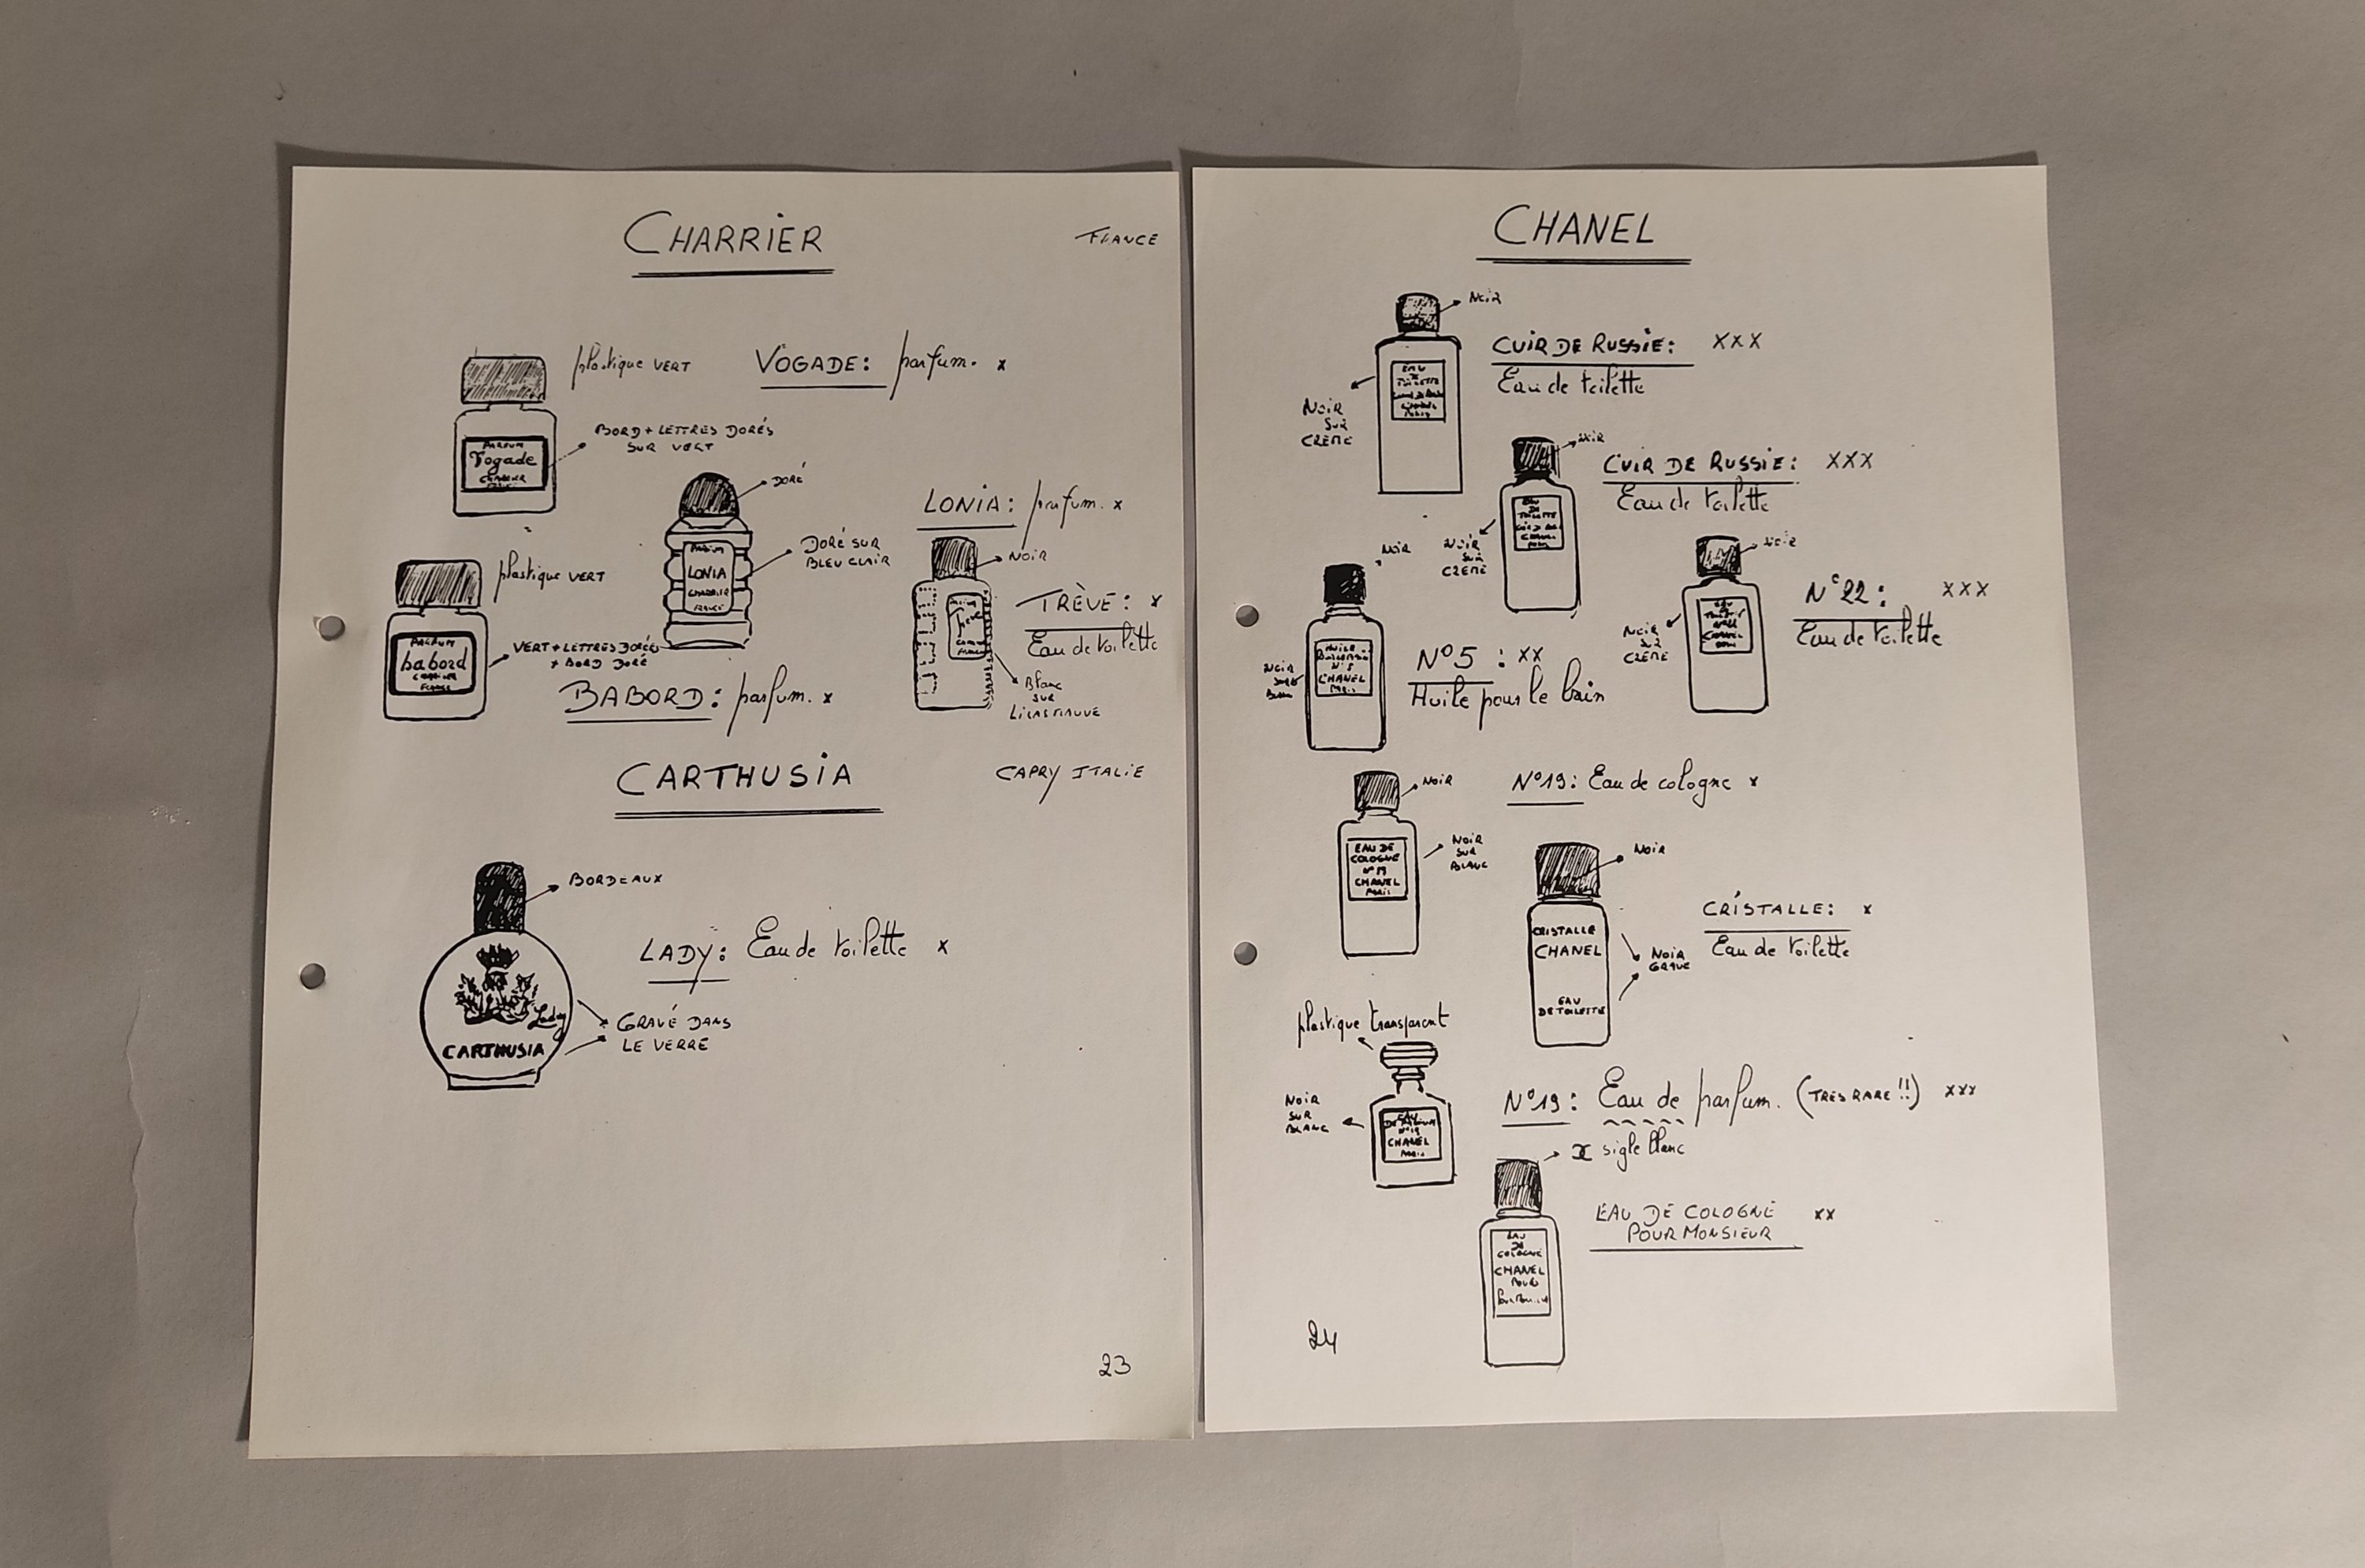 CHARRIER
FRANCE
plastique VERT
VOGADE: parfum. x
BORD + LETTRES DORÉS
SUR VERT
PARFUM
Vogade
CHARRIER
DORÉ
LONIA: parfum. x
PARFUM
LONIA
CHARRIER
FRANCE
DORÉ SUR
BLEU CLAIR
NOIR
plastique VERT
TRÈVE: x
Eau de toilette
PARFUM
babord
CHARRIER
FRANCE
VERT + LETTRES DORÉS
+ BORD DORÉ
Blanc
SUR
LILAS MAUVE
BABORD: parfum. x
CARTHUSIA
CAPRY ITALIE
BORDEAUX
LADY: Eau de toilette x
Lady
CARTHUSIA
GRAVÉ DANS
LE VERRE
23
CHANEL
NOIR
CUIR DE RUSSIE: XXX
Eau de toilette
EAU
DE
TOILETTE
NOIR
SUR
CREME
NOIR
CUIR DE RUSSIE: XXX
Eau de toilette
EAU
DE
TOILETTE
CHANEL
NOIR
SUR
CREME
NOIR
NOIR
N°22: XXX
Eau de toilette
NOIR
SUR
CREME
CHANEL
N°5: XX
Huile pour le bain
NOIR
SUR
N°5
CHANEL
Paris
NOIR
N°19: Eau de cologne x
EAU DE
COLOGNE
N°19
CHANEL
Paris
NOIR
SUR
BLANC
NOIR
CRISTALLE: x
Eau de toilette
CRISTALLE
CHANEL
EAU
DE TOILETTE
NOIR
GRAVÉ
plastique transparent
NOIR
SUR
BLANC
EAU
DE PARFUM
N°19
CHANEL
Paris
N°19: Eau de parfum. (TRES RARE!!) XXX
sigle blanc
EAU DE COLOGNE XX
POUR MONSIEUR
EAU
DE
COLOGNE
CHANEL
24